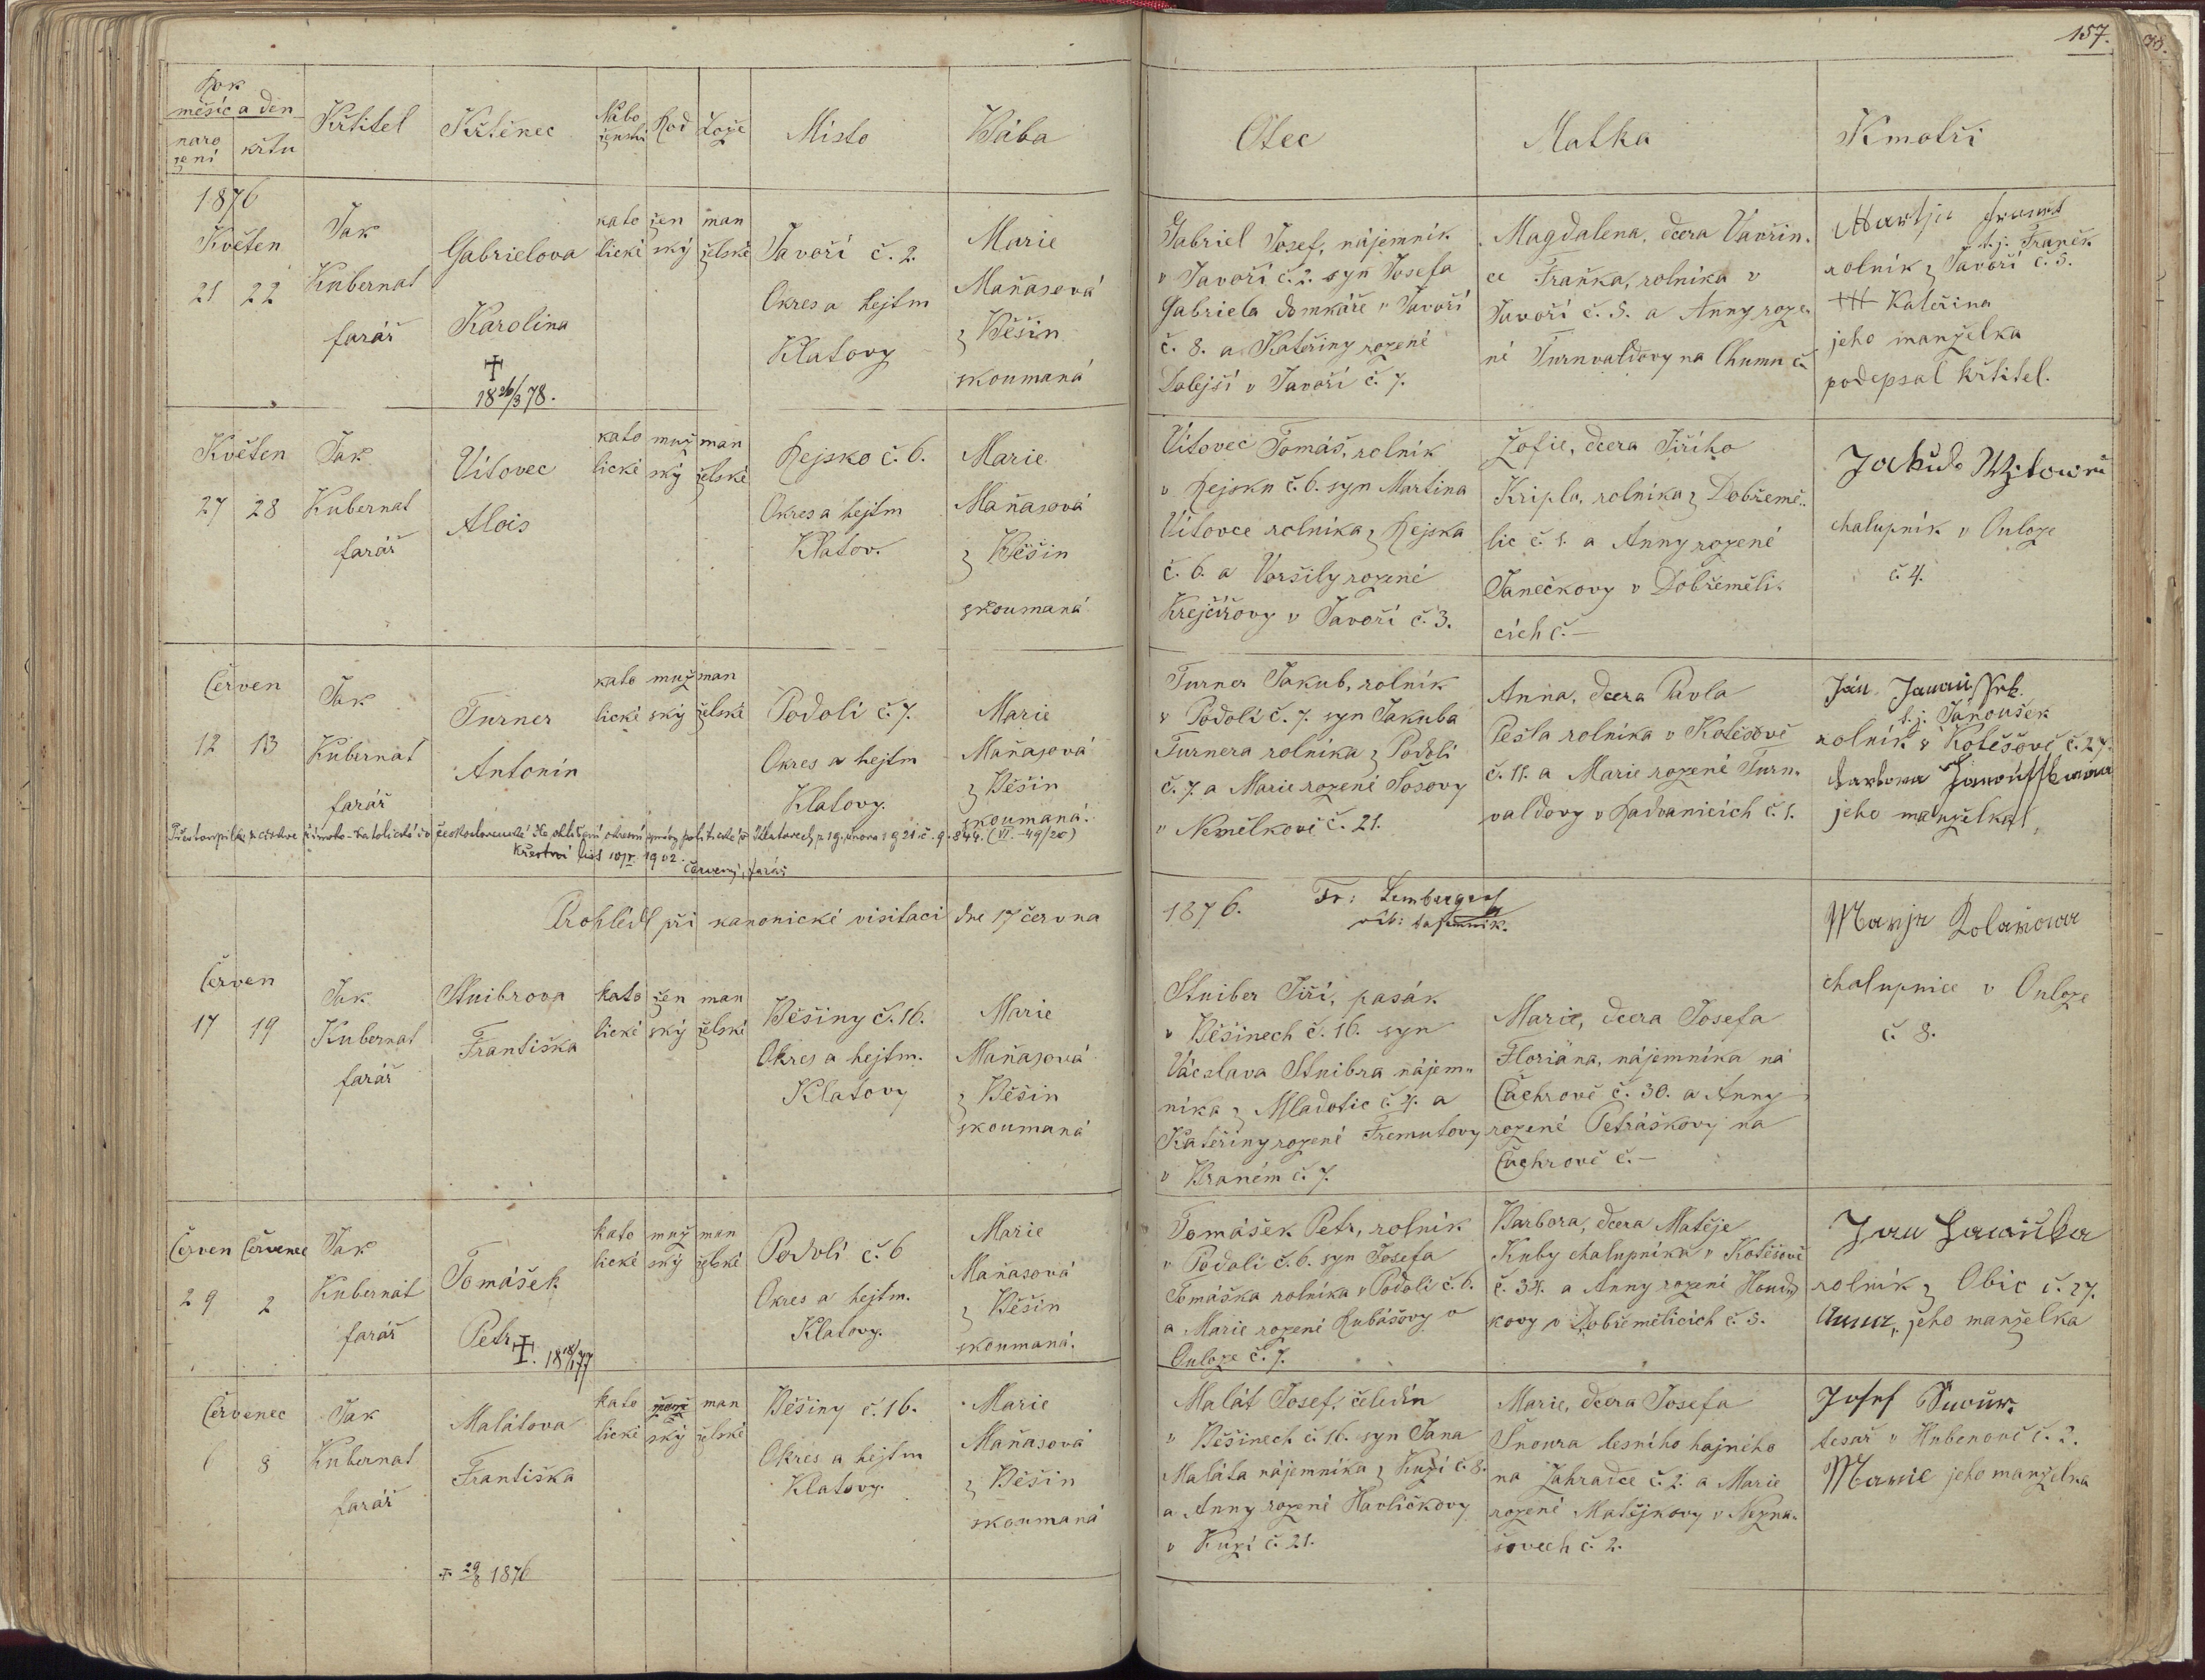 157.
Rok
měsíc a den
naro
zení
křtu
Křtitel
Křtěnec
Nábo
ženství
Rod
Lože
Místo
Bába
Otec
Matka
Kmotři
1876
Květen
21 22
Jak
Kubernat
farář
Gabrielova
Karolina
†
18 26/3 78.
kato
lické
žen
ský
man
želské
Javoří č. 2.
Okres a hejtm
Klatovy
Marie
Maňasová
z Běšin
zkoumaná
Gabriel Josef, nájemník
v Javoří č. 2. syn Josefa
Gabriela domkáře v Javoří
č. 8. a Kateřiny rozené
Dolejší v Javoří č. 7.
Magdalena, dcera Vavřin-
ce Fraňka, rolníka v
Javoří č. 5. a Anny roze-
né Turnvaldovy na Chumu č.
t. j. Franěk
rolník z Javoří č. 5.
+++ Kateřina
jeho manželka
podepsal křtitel.
Květen
27 28
Jak
Kubernat
farář
Vítovec
Alois
kato
lické
muž
ský
man
želské
Rejsko č. 6.
Okres a hejtm
Klatov.
Marie
Maňasová
z Běšin
zkoumaná
Vítovec Tomáš, rolník
v Rejsku č. 6. syn Martina
Vítovce rolníka z Rejska
č. 6. a Voršily rozené
Krejčířovy v Javoří č. 3.
Žofie, dcera Jiřího
Kripla, rolníka z Dobřemě-
lic č. 1. a Anny rozené
Janečkovy v Dobřeměli-
cích č. —
Jakub
chalupník v Ouloze
č. 4.
Červen
12 13
Jak
Kubernat
farář
Turner
Antonín
kato
lické
muž
ský
man
želské
Podolí č. 7.
Okres a hejtm
Klatovy.
Marie
Maňasová
z Běšin
zkoumaná.
Turner Jakub, rolník
v Podolí č. 7. syn Jakuba
Turnera rolníka z Podolí
č. 7. a Marie rozené Sosovy
v Nemělkově č. 21.
Anna, dcera Pavla
Pešla rolníka v Kotěšově
č. 11. a Marie rozené Turn-
valdovy v Radvanicích č. 1.
Ján
t. j. Janoušek
rolník v Kotěšově č. 27.
jeho manželka
Přestoupil z církve římsko-katolické do československé dle ohlášení okresní správy politické v Klatovech z 19. února 1921 č. 9.844. (VI.-49/20)
Křestní list 1902.
Červený, farář
Prohlédl při kanonické visitaci dne 17 června
1876. Fr: Lemberger
vik: tajemník.
Červen
17 19
Jak
Kubernat
farář
Stuibrova
Františka
kato
lické
žen
ský
man
želské
Běšiny č. 16.
Okres a hejtm.
Klatovy
Marie
Maňasová
z Běšin
zkoumaná
Stuiber Jiří, pasák
v Běšinech č. 16. syn
Václava Stuibra nájem-
níka z Mladotic č. 4. a
Kateřiny rozené Fremutovy
v Braném č. 7.
Marie, dcera Josefa
Floriána, nájemníka na
Čachrově č. 30. a Anny
rozené Petráškovy na
Čachrově č. —
chalupnice v Ouloze
č. 8.
Červen Červenec
29 2
Jak
Kubernát
farář
Tomášek
Petr
†. 18 18/1 77
kato
lické
muž
ský
man
želské
Podolí č. 6
Okres a hejtm.
Klatovy.
Marie
Maňasová
z Běšin
zkoumaná.
Tomášek Petr, rolník
v Podolí č. 6. syn Josefa
Tomáška rolníka v Podolí č. 6.
a Marie rozené Rubášovy v
Ouloze č. 7.
Barbora, dcera Matěje
Kuby chalupníka v Kotěšově
č. 34. a Anny rozené Houd-
kovy v Dobřemělicích č. 5.
Jan
rolník z Obic č. 27.
Anna, jeho manželka
Červenec
6 8
Jak
Kubernat
farář
Malátova
Františka
† 29/8 1876
kato
lické
žen
ský
man
želské
Běšiny č. 16.
Okres a hejtm
Klatovy.
Marie
Maňasová
z Běšin
zkoumaná
Malát Josef, čeledín
v Běšinech č. 16. syn Jana
Maláta nájemníka z Kuzí č. 8.
a Anny rozené Havlíčkovy
v Kuzí č. 21.
Marie, dcera Josefa
Šnoura lesního hajného
na Zahradce č. 2. a Marie
rozené Matějkovy v Nezna-
šovech č. 2.
Josef
tesař v Hubenově č. 2.
Marie jeho manželka